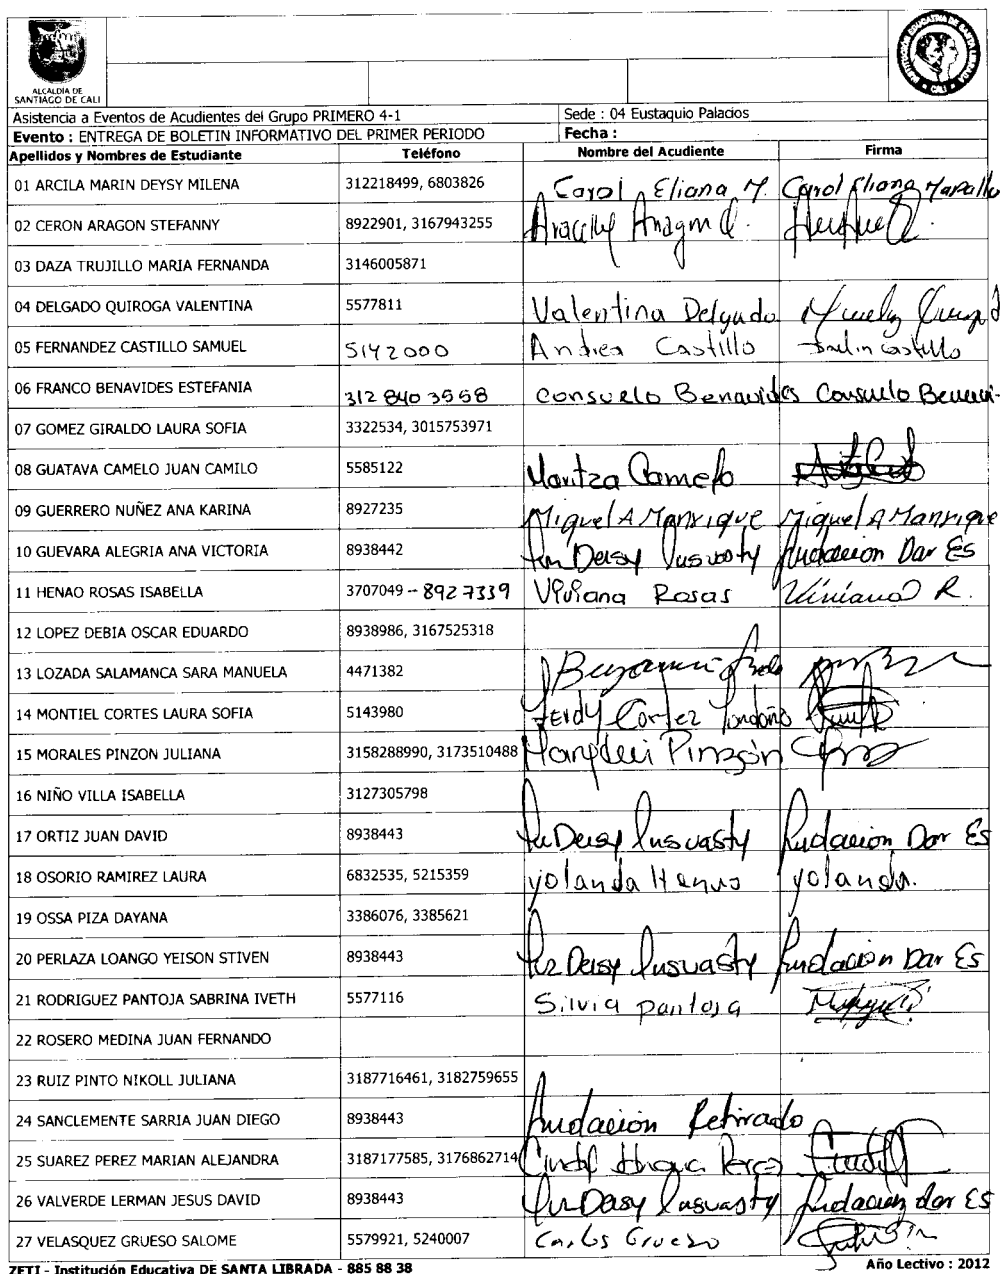 ALCALDIA DE
SANTIAGO DE CALI
INSTITUCIÓN EDUCATIVA DE SANTA LIBRADA
• CALI •
Asistencia a Eventos de Acudientes del Grupo PRIMERO 4-1 Sede : 04 Eustaquio Palacios
Evento : ENTREGA DE BOLETIN INFORMATIVO DEL PRIMER PERIODO Fecha :
Apellidos y Nombres de Estudiante Teléfono Nombre del Acudiente Firma
01 ARCILA MARIN DEYSY MILENA 312218499, 6803826 Carol Eliana M. Carol Eliana
02 CERON ARAGON STEFANNY 8922901, 3167943255
03 DAZA TRUJILLO MARIA FERNANDA 3146005871
04 DELGADO QUIROGA VALENTINA 5577811 Valentina Delgado
05 FERNANDEZ CASTILLO SAMUEL 5142000 Andrea Castillo castillo
06 FRANCO BENAVIDES ESTEFANIA 312 840 3558 Consuelo Benavides Consuelo
07 GOMEZ GIRALDO LAURA SOFIA 3322534, 3015753971
08 GUATAVA CAMELO JUAN CAMILO 5585122 Maritza Camelo
09 GUERRERO NUÑEZ ANA KARINA 8927235 Miguel A Manrique Miguel A Manrique
10 GUEVARA ALEGRIA ANA VICTORIA 8938442 Deisy Insuasty Fudacion Dar Es
11 HENAO ROSAS ISABELLA 3707049 - 8927339 Viviana Rosas Viviana R.
12 LOPEZ DEBIA OSCAR EDUARDO 8938986, 3167525318
13 LOZADA SALAMANCA SARA MANUELA 4471382
14 MONTIEL CORTES LAURA SOFIA 5143980 Cortez Londoño
15 MORALES PINZON JULIANA 3158288990, 3173510488 Pinzón
16 NIÑO VILLA ISABELLA 3127305798
17 ORTIZ JUAN DAVID 8938443 Deisy Insuasty Fudacion Dar Es
18 OSORIO RAMIREZ LAURA 6832535, 5215359 yolanda yolanda.
19 OSSA PIZA DAYANA 3386076, 3385621
20 PERLAZA LOANGO YEISON STIVEN 8938443 Deisy Insuasty Fudacion Dar Es
21 RODRIGUEZ PANTOJA SABRINA IVETH 5577116 Silvia pantoja
22 ROSERO MEDINA JUAN FERNANDO
23 RUIZ PINTO NIKOLL JULIANA 3187716461, 3182759655
24 SANCLEMENTE SARRIA JUAN DIEGO 8938443 Fudacion Retirado
25 SUAREZ PEREZ MARIAN ALEJANDRA 3187177585, 3176862714 Perez
26 VALVERDE LERMAN JESUS DAVID 8938443 Deisy Insuasty Fudacion dar Es
27 VELASQUEZ GRUESO SALOME 5579921, 5240007 Carlos Grueso
ZETI - Institución Educativa DE SANTA LIBRADA - 885 88 38 Año Lectivo : 2012